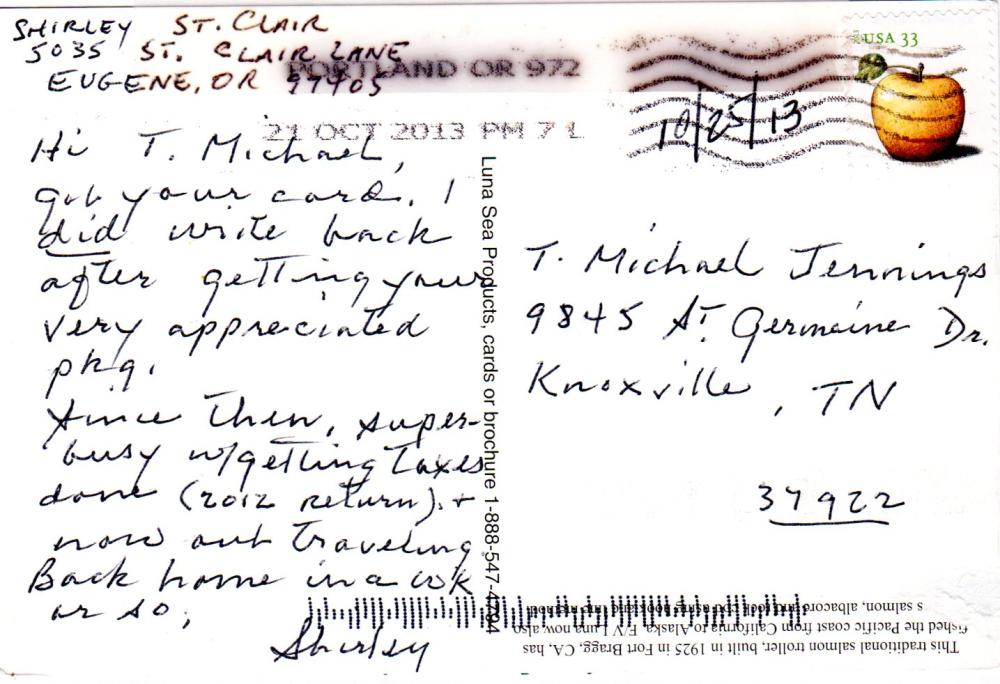 SHIRLEY ST. CLAIR
5035 ST. CLAIR LANE
EUGENE, OR 97405
PORTLAND OR 972
21 OCT 2013 PM 7 L
USA 33
10/25/13
Hi T. Michael,
got your card. I
did write back
after getting your
very appreciated
pkg.
Since then, super-
busy w/getting taxes
done (2012 return). +
now out traveling
Back home in a wk
or so,
Shirley
Luna Sea Products, cards or brochure 1-888-547-4794
T. Michael Jennings
9845 St. Germaine Dr.
Knoxville, TN
37922
This traditional salmon troller, built in 1925 in Fort Bragg, CA, has
fished the Pacific coast from California to Alaska. F/V Luna now also
s salmon, albacore and